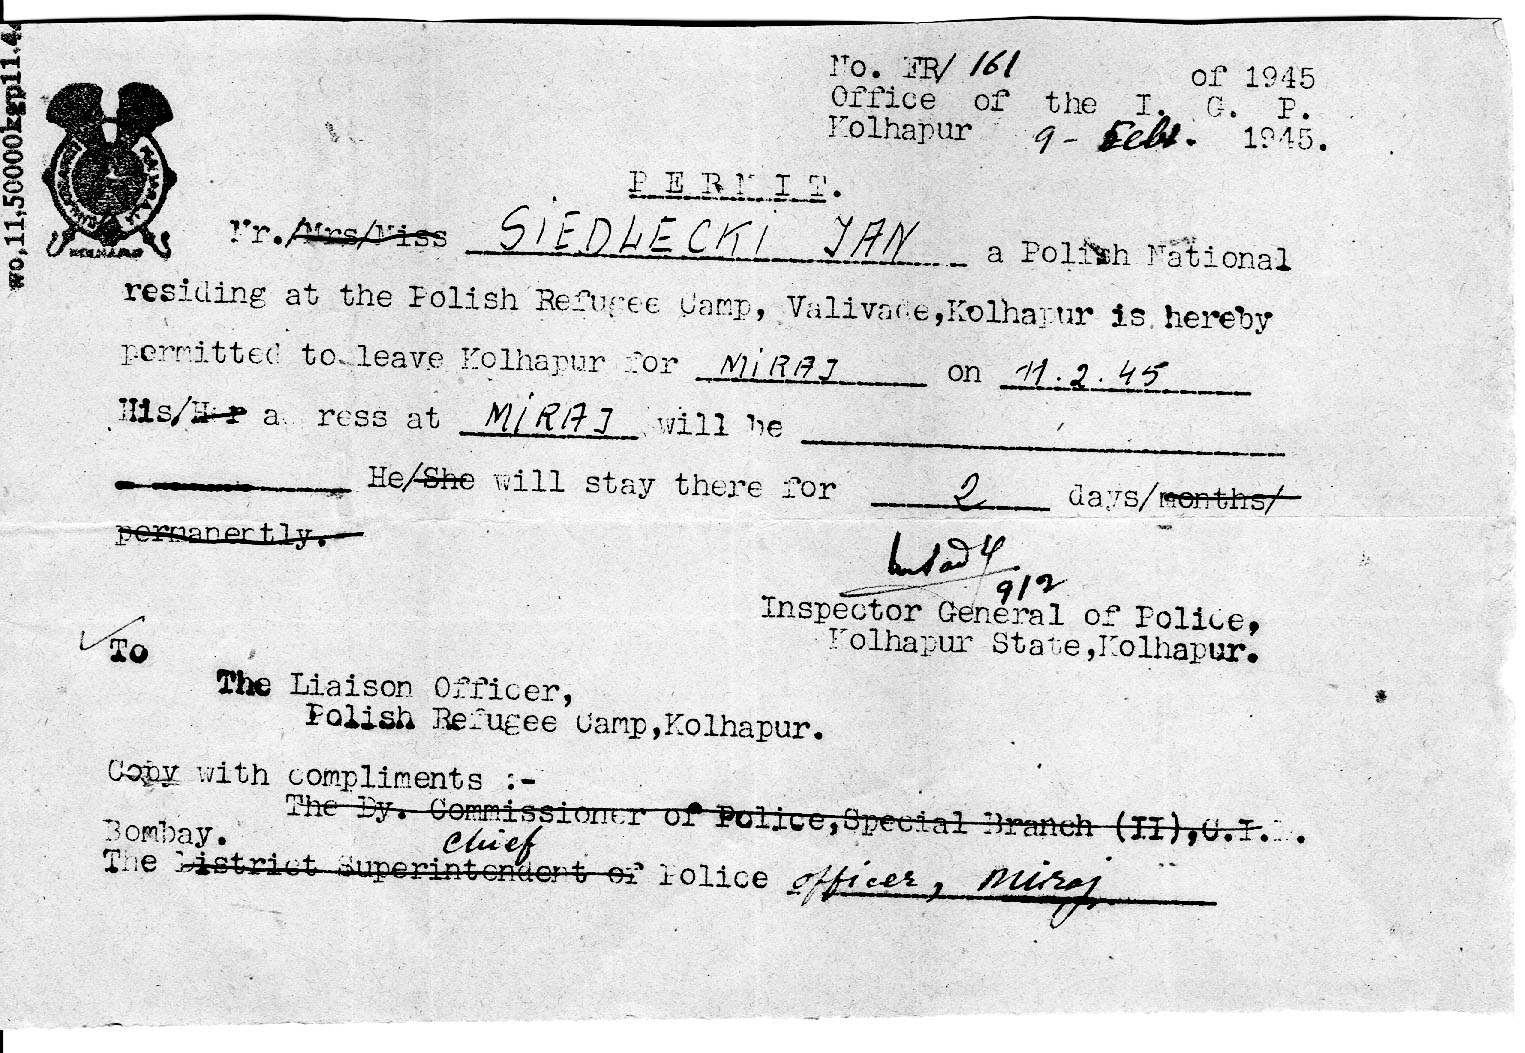 wo,11,50000kgp11.4
No. FR/ 161 of 1945
Office of the I. G. P.
Kolhapur 9 - Feb. 1945.
KOLHAPUR
PERMIT.
Mr./Mrs/Miss SIEDLECKI JAN a Polish National
residing at the Polish Refugee Camp, Valivade,Kolhapur is hereby
permitted to leave Kolhapur for MIRAJ on 11.2.45
His/Her address at MIRAJ will be
He/She will stay there for 2 days/months/
permanently.
9/2
Inspector General of Police,
Kolhapur State,Kolhapur.
To
The Liaison Officer,
Polish Refugee Camp,Kolhapur.
Copy with compliments :-
The Dy. Commissioner of Police,Special Branch (II),C.I.D.
Bombay.
Chief
The District Superintendent of Police officer, Miraj